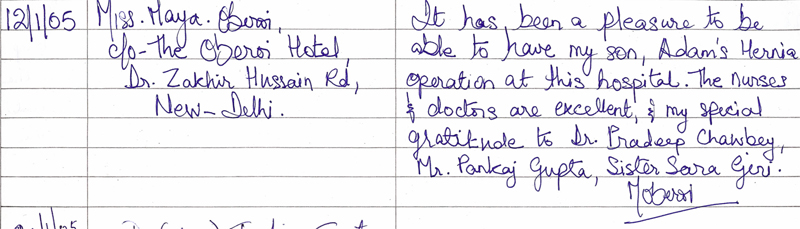 12/1/05
Miss. Maya. Oberoi,
c/o-The Oberoi Hotel,
Dr. Zakhir Hussain Rd,
New-Delhi.
It has been a pleasure to be
able to have my son, Adam's Hernia
operation at this hospital. The nurses
& doctors are excellent, & my special
gratitude to Dr. Pradeep Chawbey,
Mr. Pankaj Gupta, Sister Sara Geri.
MOberoi